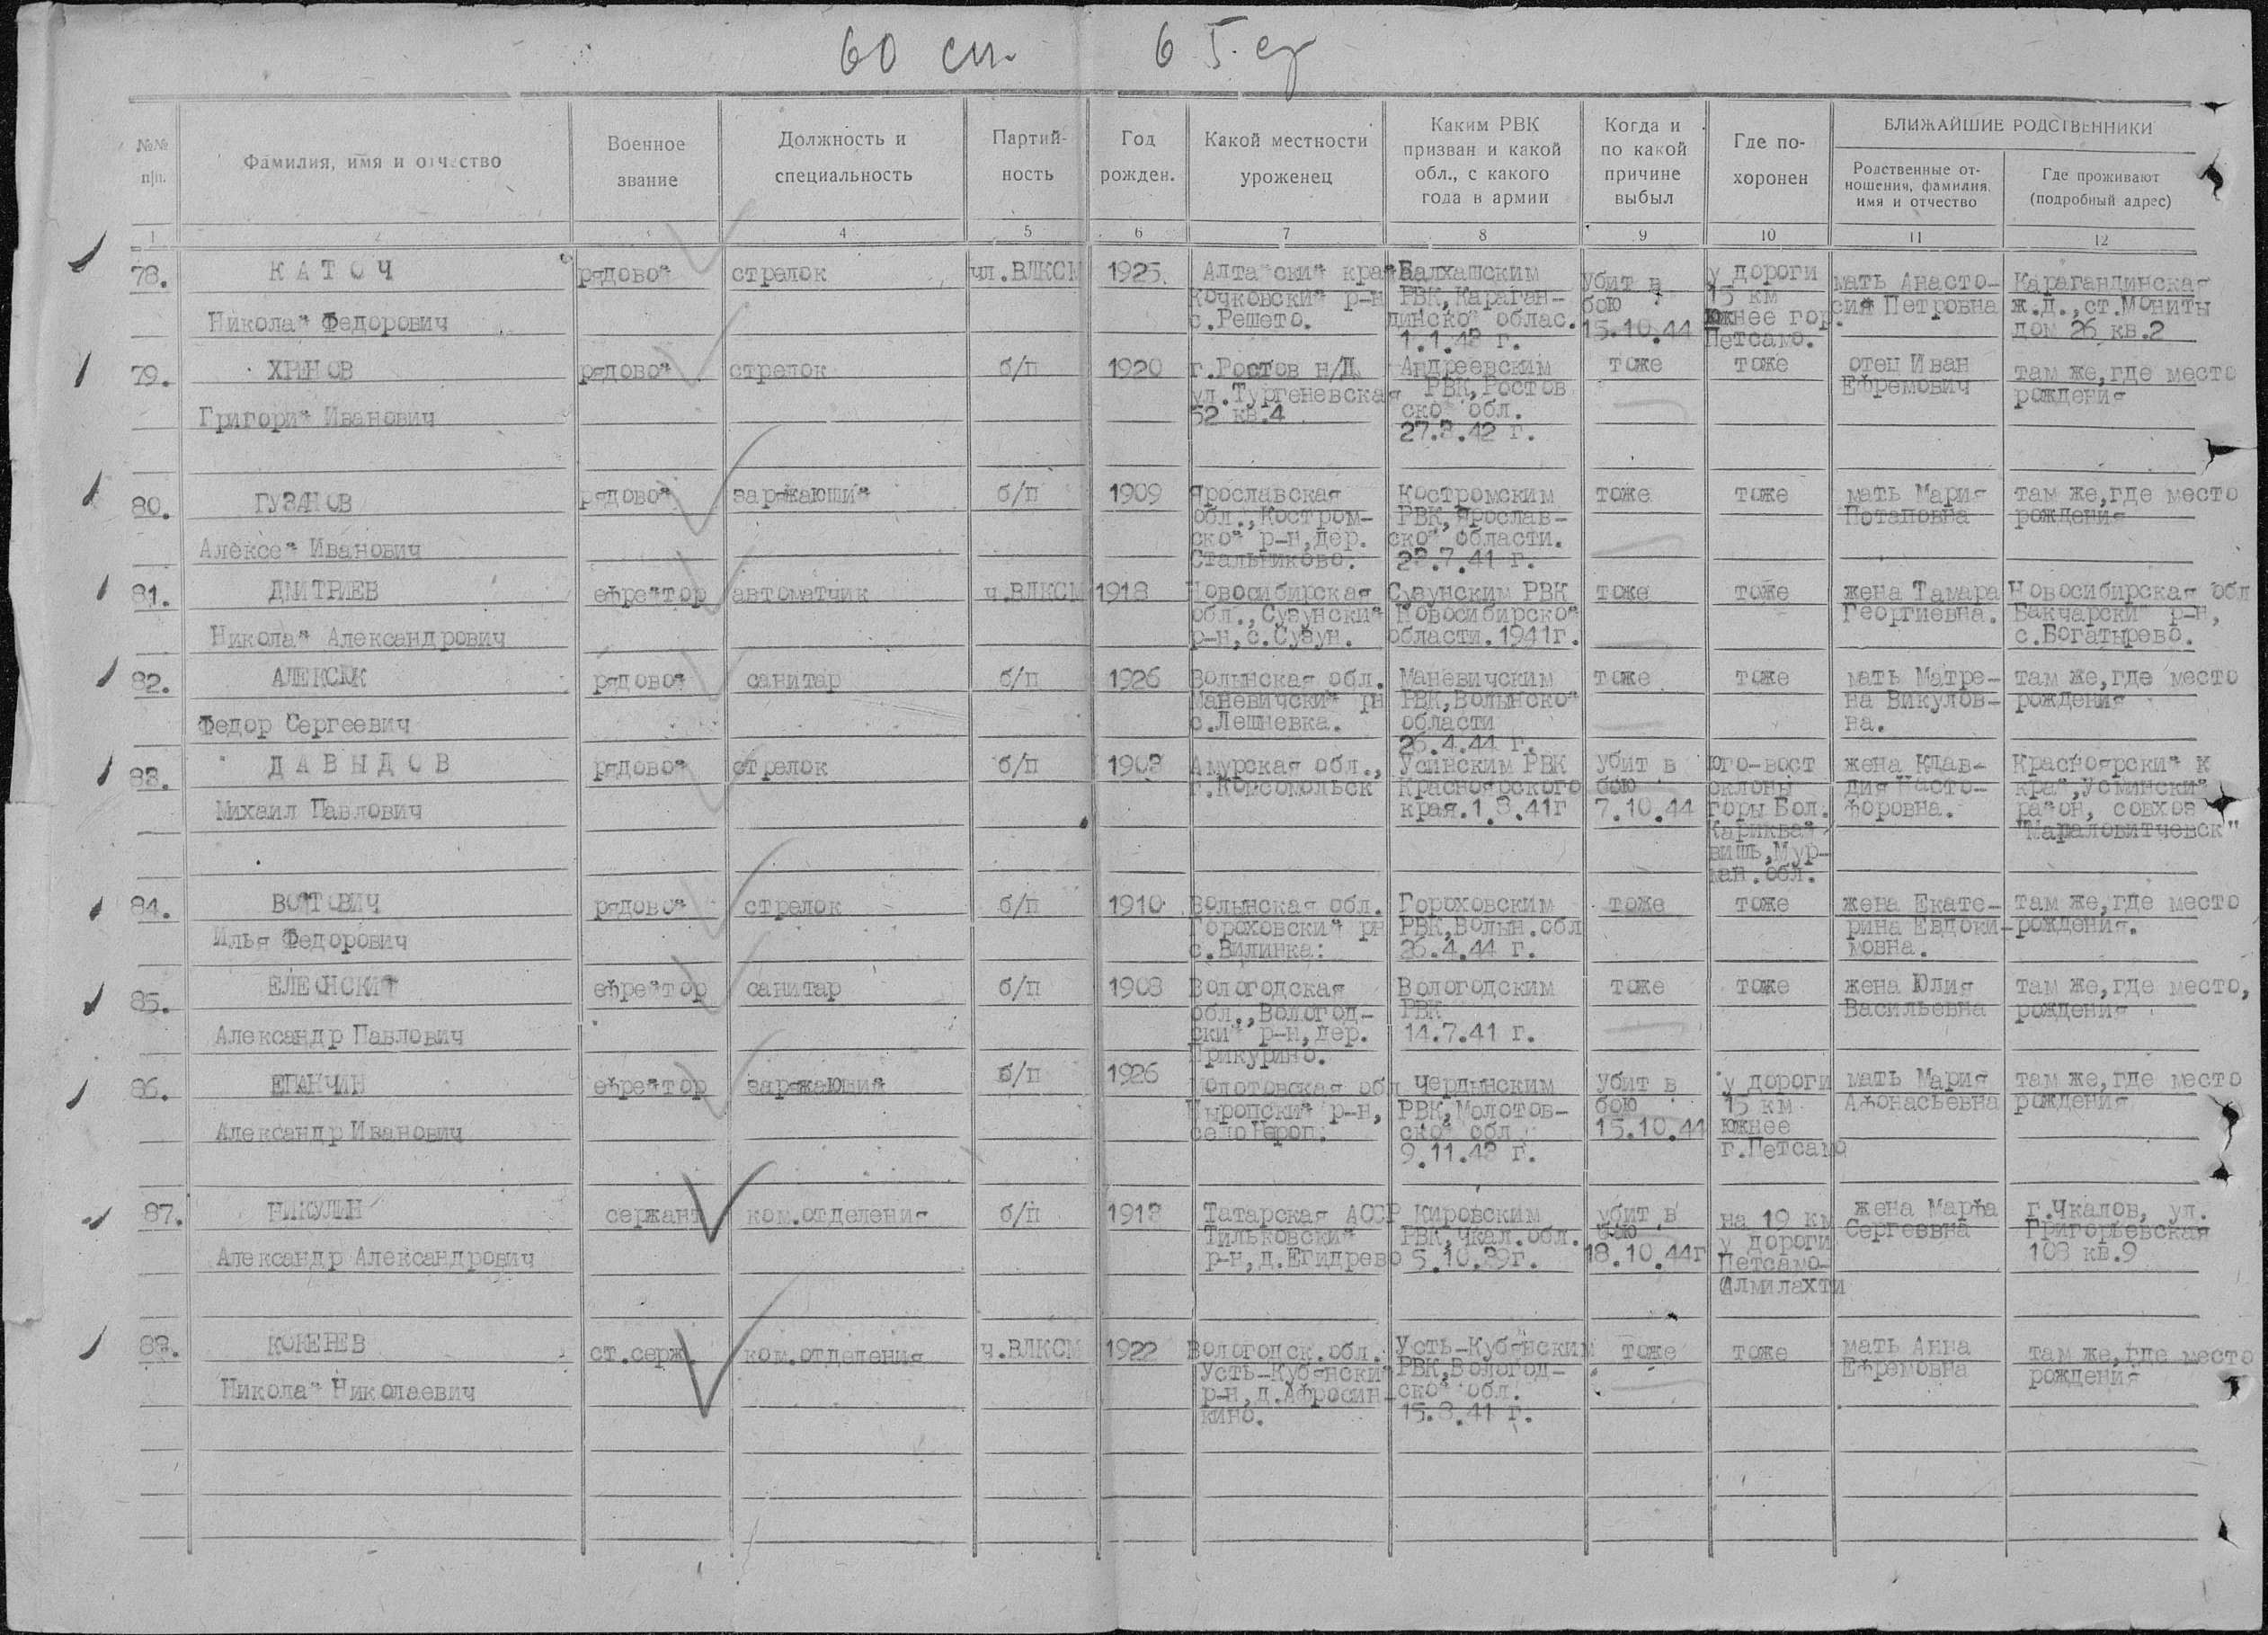 60 сп. 65. сд
№№ п|п.
Фамилия, имя и отчество
Военное звание
Должность и специальность
Партий-ность
Год рожден.
Какой местности уроженец
Каким РВК призван и какой обл., с какого года в армии
Когда и по какой причине выбыл
Где по-хоронен
БЛИЖАЙШИЕ РОДСТВЕННИКИ
Родственные от-ношения, фамилия, имя и отчество
Где проживают (подробный адрес)
1 2 3 4 5 6 7 8 9 10 11 12
78. КАТОЧ рядовой стрелок чл.ВЛКСМ 1925 Алтайский край Балхашским Убит в у дороги мать Анасто- Карагандинская
Кочковский р-н РВК,Караган- бою 15 км сия Петровна ж.д.,ст.Мониты
Николай Федорович с.Решето. динской облас. 15.10.44 южнее гор. дом 26 кв.2
1.1.43 г. Петсамо.
79. ХРЕНОВ рядовой стрелок б/п 1920 г.Ростов н/Д. Андреевским тоже тоже отец Иван там же,где место
ул.Тургеневская РВК,Ростов Ефремович рождения
Григорий Иванович 52 кв.4 ской обл.
27.8.42 г.
80. ГУЗАНОВ рядовой заряжающий б/п 1909 Ярославская Костромским тоже тоже мать Мария там же,где место
обл.,Костром- РВК,Ярослав- Потаповна рождения
Алексей Иванович ской р-н,дер. ской области.
Стальниково. 23.7.41 г.
81. ДМИТРИЕВ ефрейтор автоматчик ч.ВЛКСМ 1918 Новосибирская Сузунским РВК тоже тоже жена Тамара Новосибирская обл
обл.,Сузунский Новосибирской Георгиевна. Бакчарский р-н,
Николай Александрович р-н,с.Сузун. области.1941г. с.Богатырево.
82. АЛЕКСЮК рядовой санитар б/п 1926 Волынская обл. Маневичским тоже тоже мать Матре- там же,где место
Маневичский рн РВК,Волынской на Викулов- рождения
Федор Сергеевич с.Лешневка. области на.
26.4.44 г.
83. ДАВЫДОВ рядовой стрелок б/п 1908 Амурская обл., Усинским РВК убит в юго-вост жена Клав- Красноярский к
г.Комсомольск Красноярского бою склоны дия Насто- край,Усминский
Михаил Павлович края.1.8.41г 7.10.44 горы Бол. форовна. район, совхоз
Кариквай "Мараловитчевск"
вишь,Мур-
ман.обл.
84. ВОЙТОВИЧ рядовой стрелок б/п 1910 Волынская обл. Гороховским тоже тоже жена Екате- там же,где место
Гороховский рн РВК,Волын.обл рина Евдоки- рождения.
Илья Федорович с.Вилинка: 26.4.44 г. мовна.
85. ЕЛЕОНСКИЙ ефрейтор санитар б/п 1908 Вологодская Вологодским тоже тоже жена Юлия там же,где место,
обл.,Вологод- РВК Васильевна рождения
Александр Павлович ский р-н,дер. 14.7.41 г.
Прикурино.
86. ЕПАНЧИН ефрейтор заряжающий б/п 1926 Молотовская обл Чердынским убит в у дороги мать Мария там же,где место
Ныропский р-н, РВК,Молотов- бою 15 км Афонасьевна рождения
Александр Иванович село Нероп. ской обл. 15.10.44 южнее
9.11.43 г. г.Петсамо
87. НИКУЛИН сержант ком.отделения б/п 1918 Татарская АССР Кировским убит в на 19 км жена Марфа г.Чкалов, ул.
Тильковский РВК,Чкал.обл. бою у дороги Сергеевна Григорьевская
Александр Александрович р-н,д.Егидрево 5.10.39г. 18.10.44г Петсамо- 108 кв.9
Алмилахти
88. КОРЕНЕВ ст.серж. ком.отделения ч.ВЛКСМ 1922 Вологодск.обл. Усть-Кубянским тоже тоже мать Анна там же,где место
Усть-Кубянский РВК,Вологод- Ефремовна рождения
Николай Николаевич р-н,д.Афросин- ской обл.
кино. 15.8.41 г.